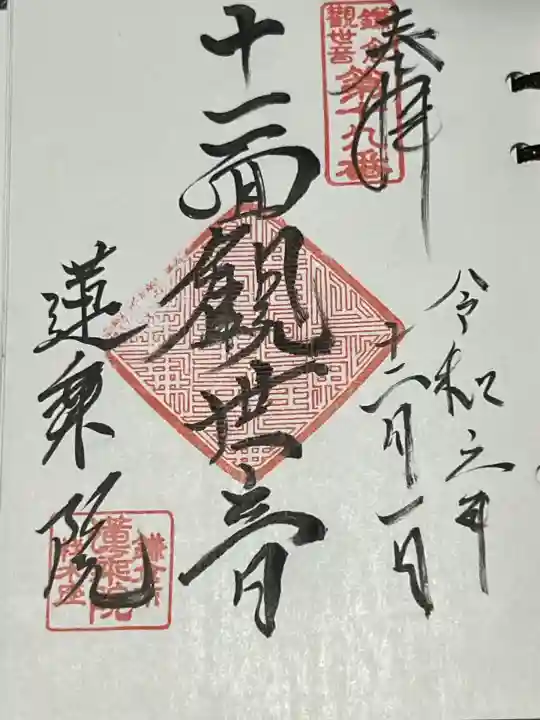 奉拝
鎌倉
観世音
第十九番
令和元年
十二月一日
十一面観世音
蓮乗院